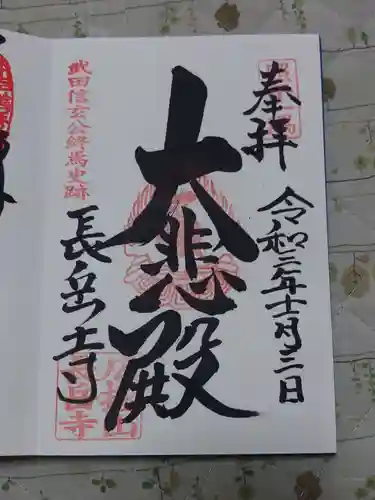 奉拝
令和二年十一月三日
大悲殿
武田信玄公終焉史跡
長岳寺